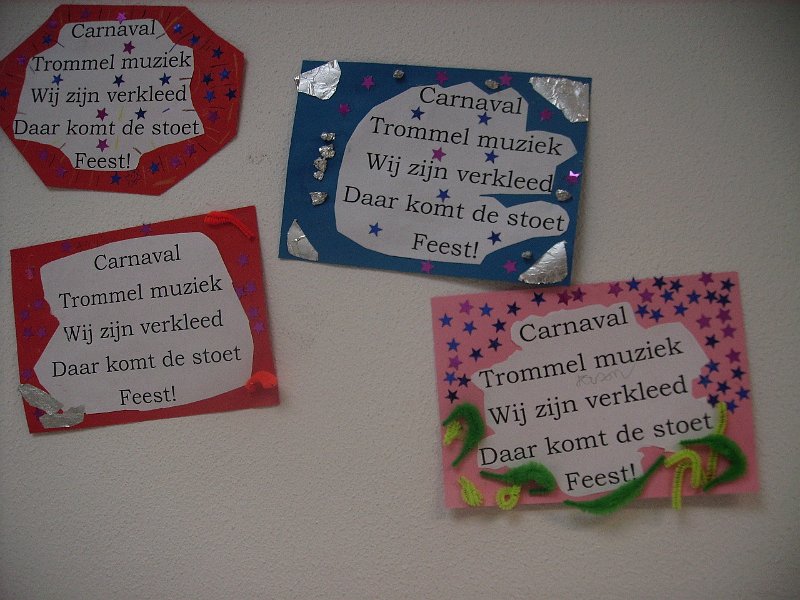 Carnaval
Trommel muziek
Wij zijn verkleed
Daar komt de stoet
Feest!
Carnaval
Trommel muziek
Wij zijn verkleed
Daar komt de stoet
Feest!
Carnaval
Trommel muziek
Wij zijn verkleed
Daar komt de stoet
Feest!
Carnaval
Trommel muziek
Wij zijn verkleed
Daar komt de stoet
Feest!